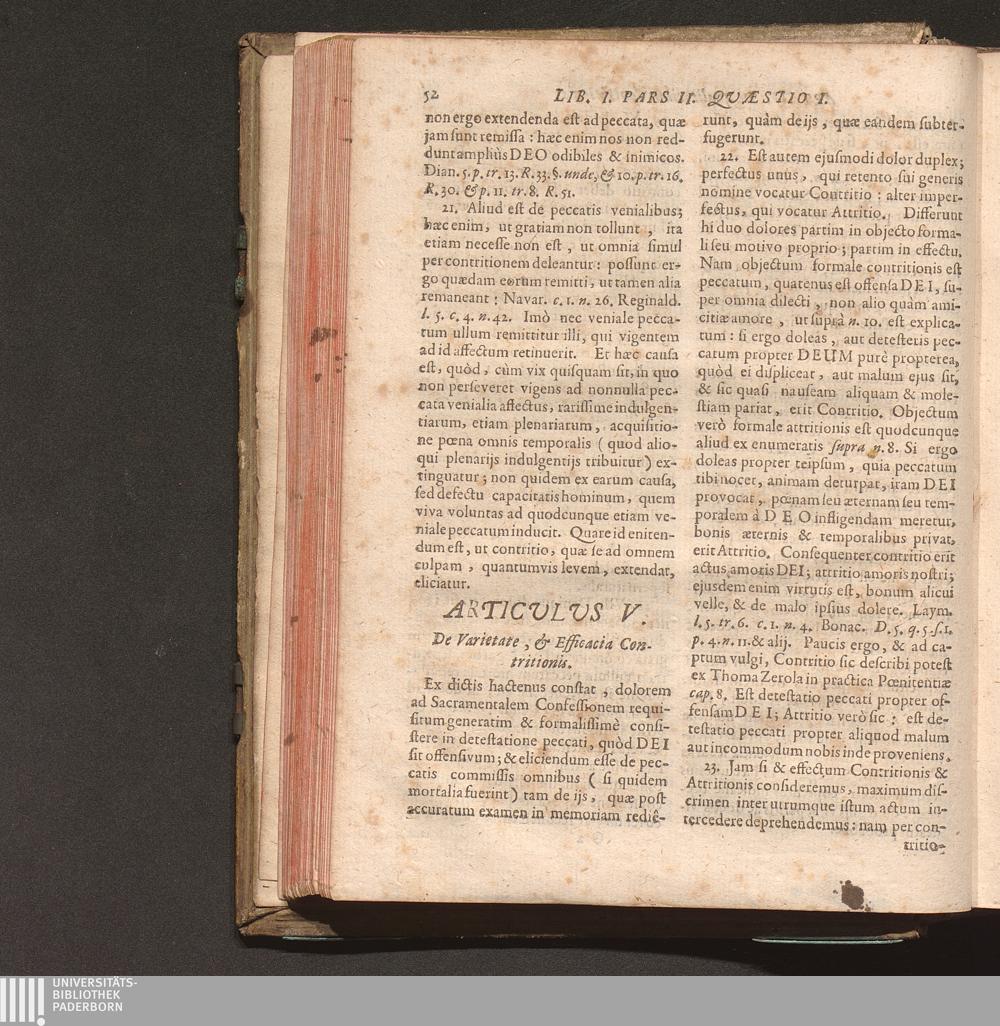 52
LIB. I. PARS II. QVÆSTIO I.
non ergo extendenda eſt ad peccata, quæ
jam ſunt remiſſa : hæc enim nos non red-
dunt ampliùs DEO odibiles & inimicos.
Dian. 5. p. tr. 13. R. 33. §. unde, & 10. p. tr. 16.
R. 30. & p. 11. tr. 8. R. 51.
21. Aliud eſt de peccatis venialibus;
hæc enim, ut gratiam non tollunt, ita
etiam neceſſe non eſt, ut omnia ſimul
per contritionem deleantur : poſſunt er-
go quædam eorum remitti, ut tamen alia
remaneant : Navar. c. 1. n. 26. Reginald.
l. 5. c. 4. n. 42. Imò nec veniale pecca-
tum ullum remittitur illi, qui vigentem
ad id affectum retinuerit. Et hæc cauſa
eſt, quòd, cùm vix quiſquam ſit, in quo
non perſeveret vigens ad nonnulla pec-
cata venialia affectus, rariſſime indulgen-
tiarum, etiam plenariarum, acquiſitio-
ne pœna omnis temporalis ( quod alio-
qui plenarijs indulgentijs tribuitur ) ex-
tinguatur ; non quidem ex earum cauſa,
ſed defectu capacitatis hominum, quem
viva voluntas ad quodcunque etiam ve-
niale peccatum inducit. Quare id eniten-
dum eſt, ut contritio, quæ ſe ad omnem
culpam, quantumvis levem, extendat,
eliciatur.
ARTICULUS V.
De Varietate, & Efficacia Con-
tritionis.
Ex dictis hactenus conſtat, dolorem
ad Sacramentalem Confeſſionem requi-
ſitum generatim & formaliſſimè conſi-
ſtere in deteſtatione peccati, quòd DEI
ſit offenſivum ; & eliciendum eſſe de pec-
catis commiſſis omnibus ( ſi quidem
mortalia fuerint ) tam de ijs, quæ poſt
accuratum examen in memoriam rediê-
runt, quàm de ijs, quæ eandem ſubter-
fugerunt.
22. Eſt autem ejuſmodi dolor duplex;
perfectus unus, qui retento ſui generis
nomine vocatur Contritio : alter imper-
fectus, qui vocatur Attritio. Differunt
hi duo dolores partim in objecto forma-
li ſeu motivo proprio ; partim in effectu.
Nam objectum formale contritionis eſt
peccatum, quatenus eſt offenſa DEI, ſu-
per omnia dilecti, non alio quàm ami-
citiæ amore, ut ſuprà n. 10. eſt explica-
tum : ſi ergo doleas, aut deteſteris pec-
catum propter DEUM purè propterea,
quòd ei diſpliceat, aut malum ejus ſit,
& ſic quaſi nauſeam aliquam & mole-
ſtiam pariat, erit Contritio. Objectum
verò formale attritionis eſt quodcunque
aliud ex enumeratis ſupra n. 8. Si ergo
doleas propter teipſum, quia peccatum
tibi nocet, animam deturpat, iram DEI
provocat, pœnam ſeu æternam ſeu tem-
poralem à DEO infligendam meretur,
bonis æternis & temporalibus privat,
erit Attritio. Conſequenter contritio erit
actus amoris DEI; attritio amoris noſtri;
ejusdem enim virtutis eſt, bonum alicui
velle, & de malo ipſius dolere. Laym.
l. 5. tr. 6. c. 1. n. 4. Bonac. D. 5. q. 5. ſ. 1.
p. 4. n. 11. & alij. Paucis ergo, & ad ca-
ptum vulgi, Contritio ſic deſcribi poteſt
ex Thoma Zerola in practica Pœnitentiæ
cap. 8. Eſt deteſtatio peccati propter of-
fenſam DEI; Attritio verò ſic : eſt de-
teſtatio peccati propter aliquod malum
aut incommodum nobis inde proveniens.
23. Jam ſi & effectum Contritionis &
Attritionis conſideremus, maximum diſ-
crimen inter utrumque iſtum actum in-
tercedere deprehendemus : nam per con-
tritio-
UNIVERSITÄTS-
BIBLIOTHEK
PADERBORN